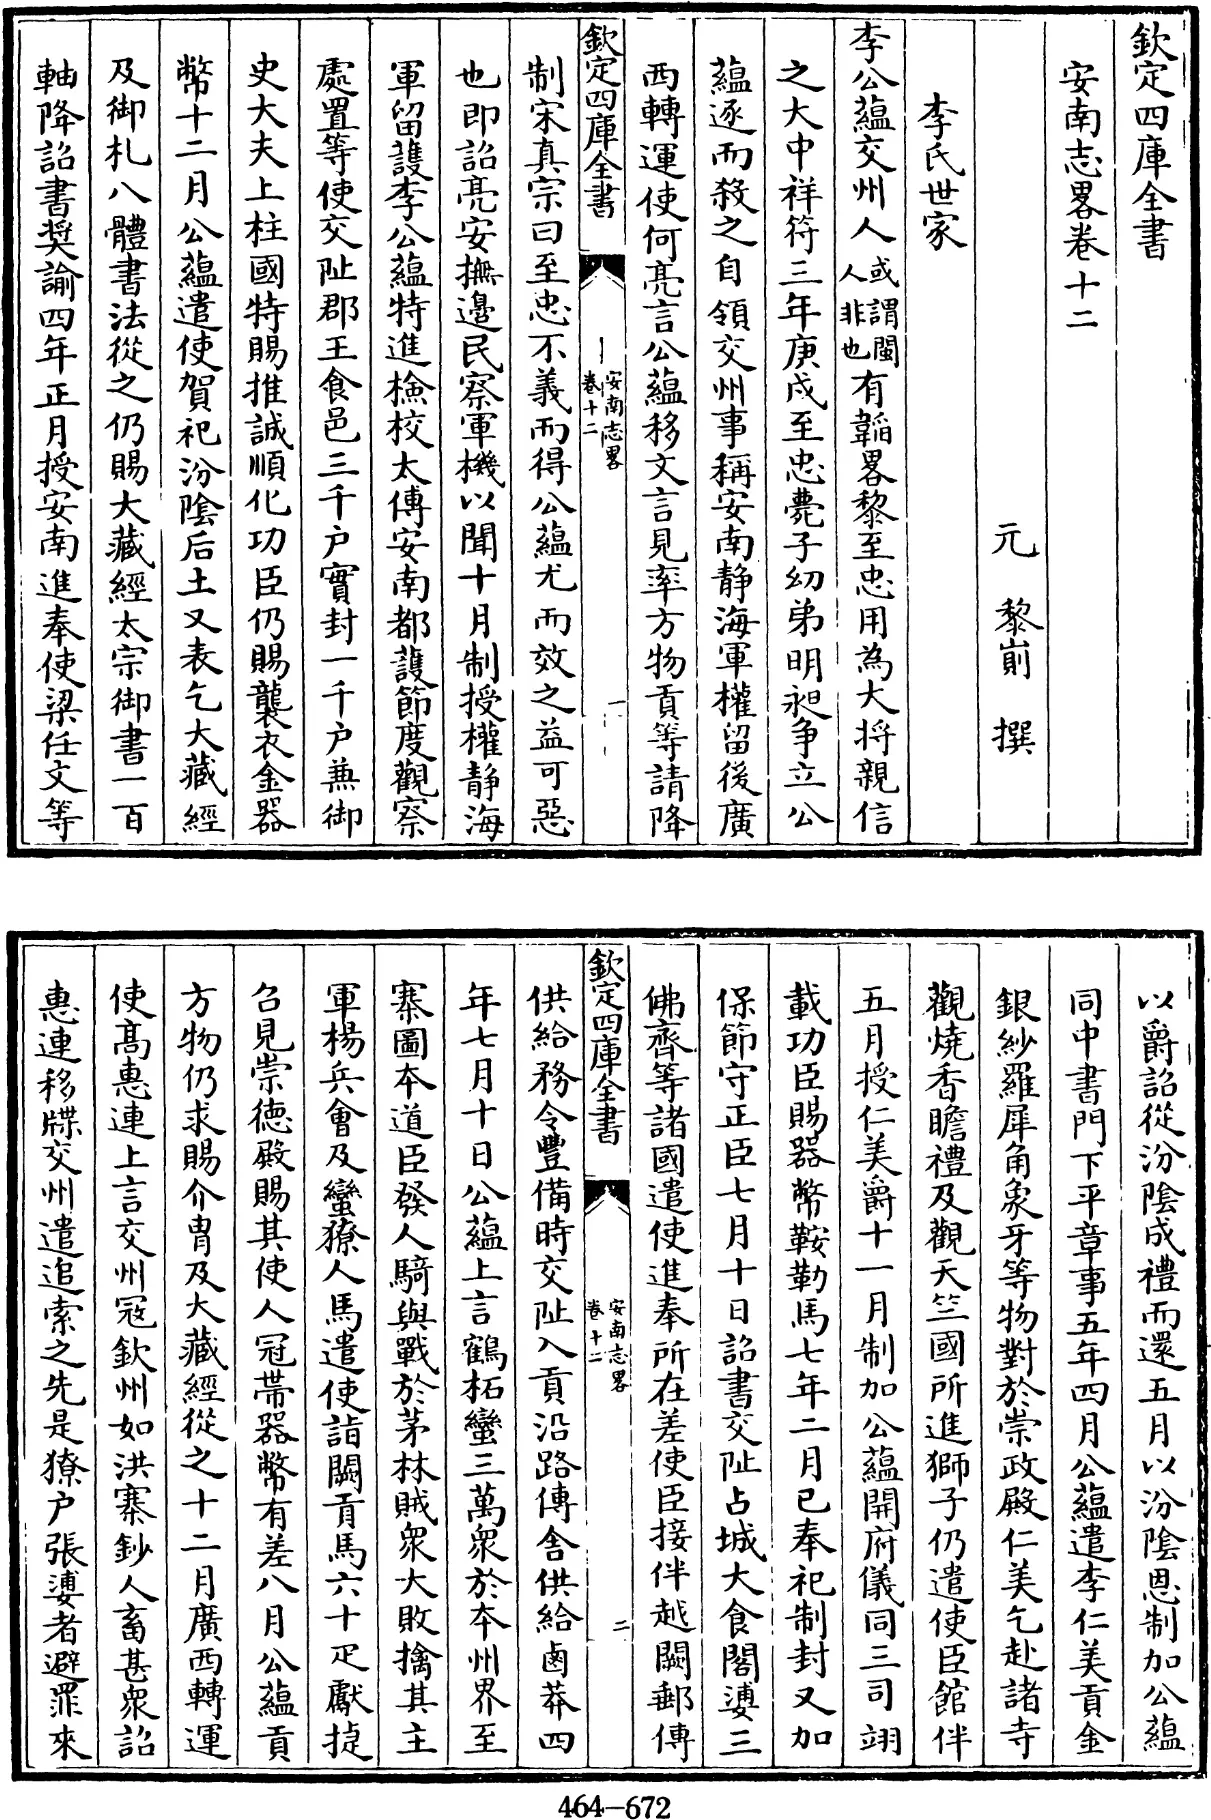 欽定四庫全書
安南志畧卷十二
元 黎崱 撰
李氏世家
李公蘊交州人或謂閩人非也有韜畧黎至忠用為大將親信
之大中祥符三年庚戌至忠薨子幼弟明昶爭立公
蘊逐而殺之自領交州事稱安南静海軍權留後廣
西轉運使何亮言公蘊移文言見率方物貢等請降
欽定四庫全書
安南志畧
卷十二
一
制宋真宗曰至忠不義而得公蘊尤而效之益可惡
也即詔亮安撫邊民察軍機以聞十月制授權静海
軍留護李公蘊特進檢校太傅安南都護節度觀察
處置等使交阯郡王食邑三千户實封一千户兼御
史大夫上柱國特賜推誠順化功臣仍賜襲衣金器
幣十二月公蘊遣使賀祀汾陰后土又表乞大藏經
及御札八體書法從之仍賜大藏經太宗御書一百
軸降詔書奨諭四年正月授安南進奉使梁任文等
以爵詔從汾陰成禮而還五月以汾陰恩制加公蘊
同中書門下平章事五年四月公蘊遣李仁美貢金
銀紗羅犀角象牙等物對於崇政殿仁美乞赴諸寺
觀燒香瞻禮及觀天竺國所進獅子仍遣使臣館伴
五月授仁美爵十一月制加公蘊開府儀同三司翊
載功臣賜器幣鞍勒馬七年二月已奉祀制封又加
保節守正臣七月十日詔書交阯占城大食閣婆三
佛齊等諸國遣使進奉所在差使臣接伴越闕郵傳
欽定四庫全書
安南志畧
卷十二
二
供給務令豐備時交阯入貢沿路傳舍供給鹵莽四
年七月十日公蘊上言鶴柘蠻三萬衆於本州界至
寨圖本道臣發人騎與戰於茅林賊衆大敗擒其主
軍楊兵會及蠻獠人馬遣使詣闕貢馬六十疋獻捷
召見崇徳殿賜其使人冠帯器幣有差八月公蘊貢
方物仍求賜介胄及大藏經從之十二月廣西轉運
使髙惠連上言交州冦欽州如洪寨鈔人畜甚衆詔
惠連移牒交州遣追索之先是獠户張婆者避罪來
464—672